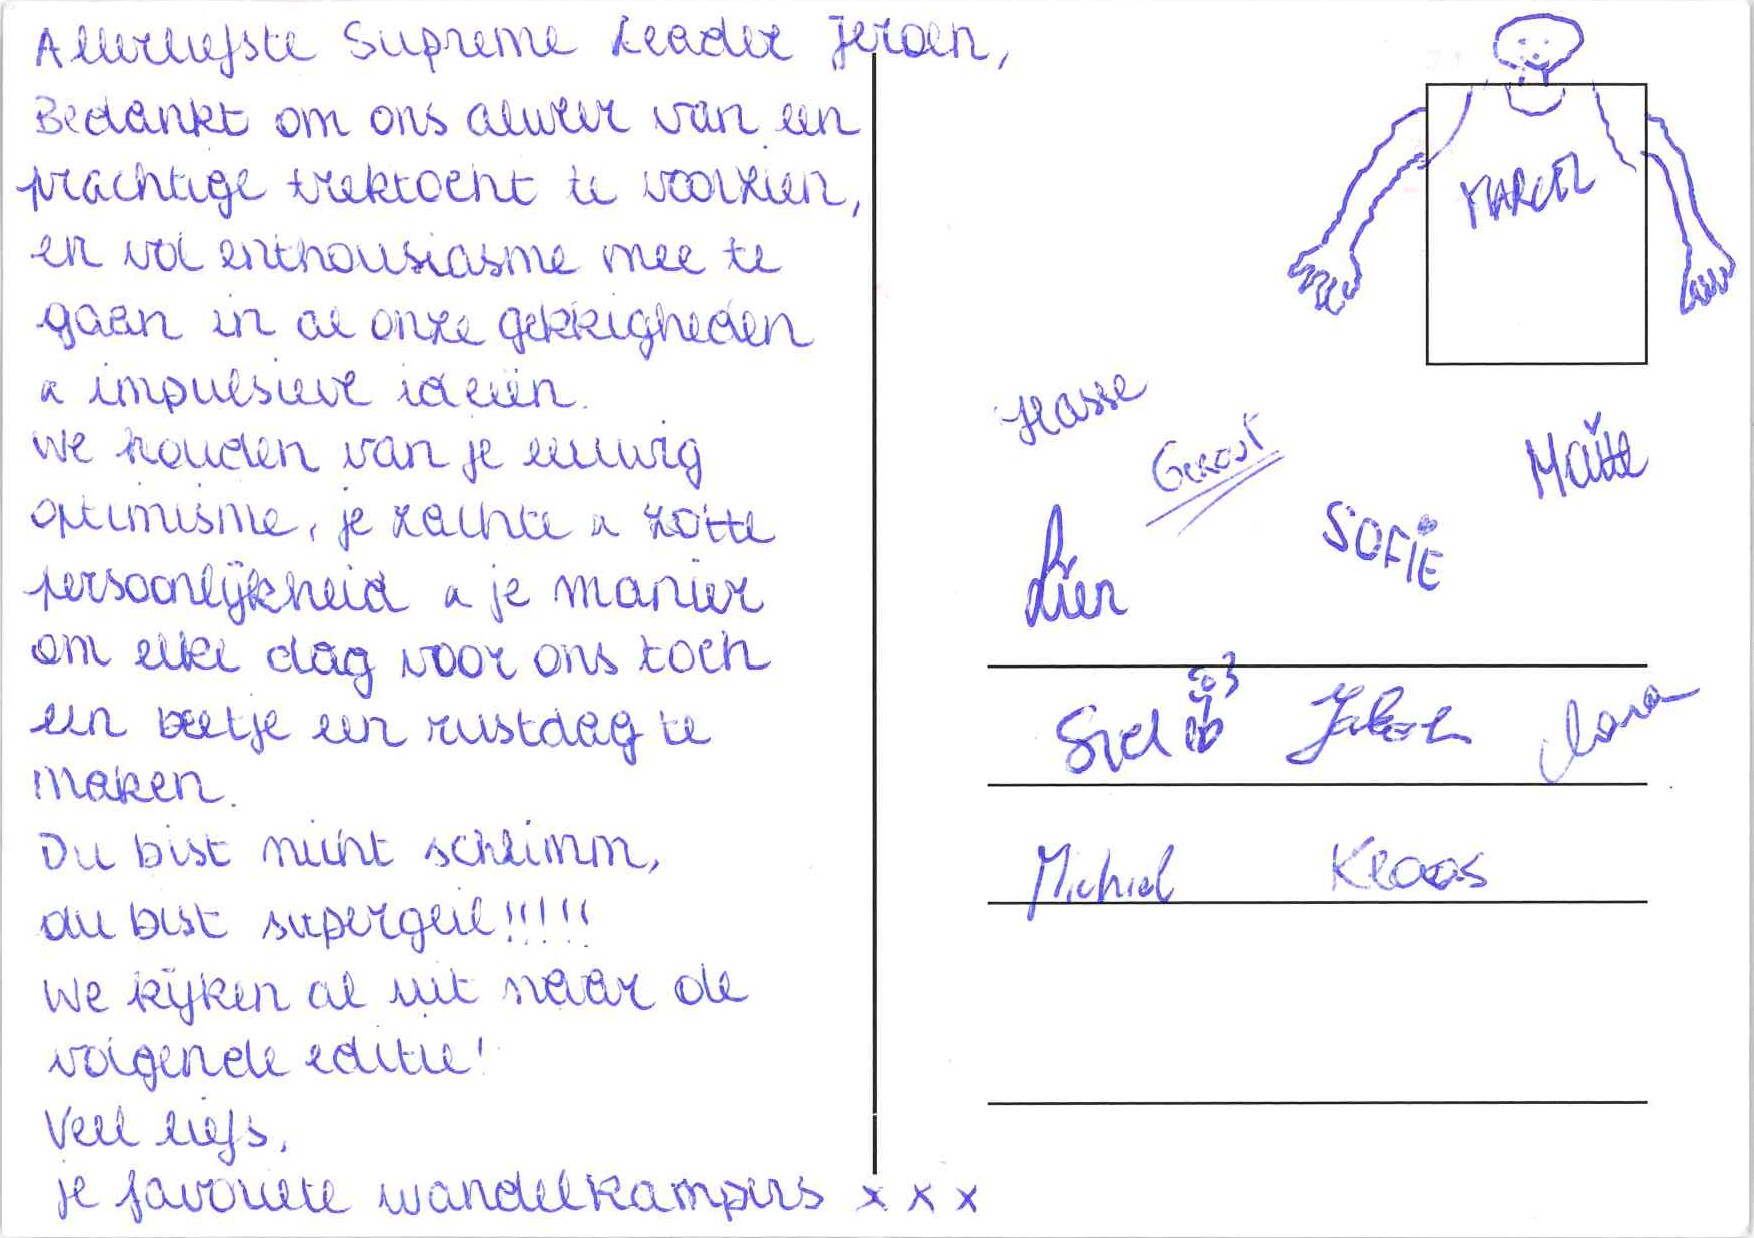 Allerliefste Supreme Leader Jeroen,
Bedankt om ons alweer van een
prachtige trektocht te voorzien,
en vol enthousiasme mee te
gaan in al onze gekkigheden
& impulsieve ideeën.
We houden van je eeuwig
optimisme, je zachte & zotte
persoonlijkheid & je manier
om elke dag voor ons toch
een beetje een rustdag te
maken.
Du bist nicht schlimm,
du bist supergeil!!!!!
We kijken al uit naar de
volgende editie!
Veel liefs,
je favoriete wandelkampers x x x
MARCEL
Hasse
Gerout
Maïtté
SOFIE
Lien
Siel
Jakob
Lara
Michiel
Klaas